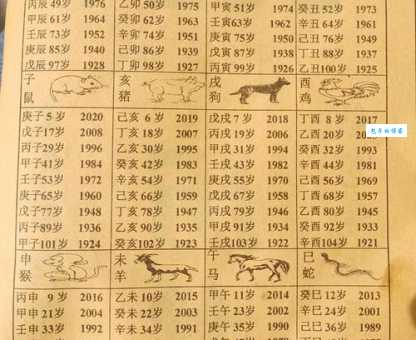 丙辰 49岁 1976 乙卯 50岁 1975 甲寅 51岁 1974 癸丑 52岁 1973
甲辰 61岁 1964 癸卯 62岁 1963 壬寅 63岁 1962 辛丑 64岁 1961
壬辰 73岁 1952 辛卯 74岁 1951 庚寅 75岁 1950 己丑 76岁 1949
庚辰 85岁 1940 己卯 86岁 1939 戊寅 87岁 1938 丁丑 88岁 1937
戊辰 97岁 1928 丁卯 98岁 1927 丙寅 99岁 1926 乙丑 100岁 1925
子鼠 亥猪 戌狗 酉鸡
庚子 5岁 2020 己亥 6岁 2019 戊戌 7岁 2018 丁酉 8岁 2017
戊子 17岁 2008 丁亥 18岁 2007 丙戌 19岁 2006 乙酉 20岁
丙子 29岁 1996 乙亥 30岁 1995 甲戌 31岁 1994 癸酉 32岁 1993
甲子 41岁 1984 癸亥 42岁 1983 壬戌 43岁 1982 辛酉 44岁 1981
壬子 53岁 1972 辛亥 54岁 1971 庚戌 55岁 1970 己酉 56岁 1969
庚子 65岁 1960 己亥 66岁 1959 戊戌 67岁 1958 丁酉 68岁 1957
戊子 77岁 1948 丁亥 78岁 1947 丙戌 79岁 1946 乙酉 80岁 1945
丙子 89岁 1936 乙亥 90岁 1935 甲戌 91岁 1934 癸酉 92岁 1933
甲子 101岁 1924 癸亥 102岁 1923 壬戌 103岁 1922 辛酉 104岁 1921
申猴 未羊 午马 巳蛇
丙申 9岁 2016 乙未 10岁 2015 甲午 11岁 2014 癸巳 12岁 2013
甲申 21岁 2004 癸未 22岁 2003 壬午 23岁 2002 辛巳 24岁 2001
壬申 33岁 1992 辛未 34岁 1991 庚午 35岁 1990 己巳 36岁 1989